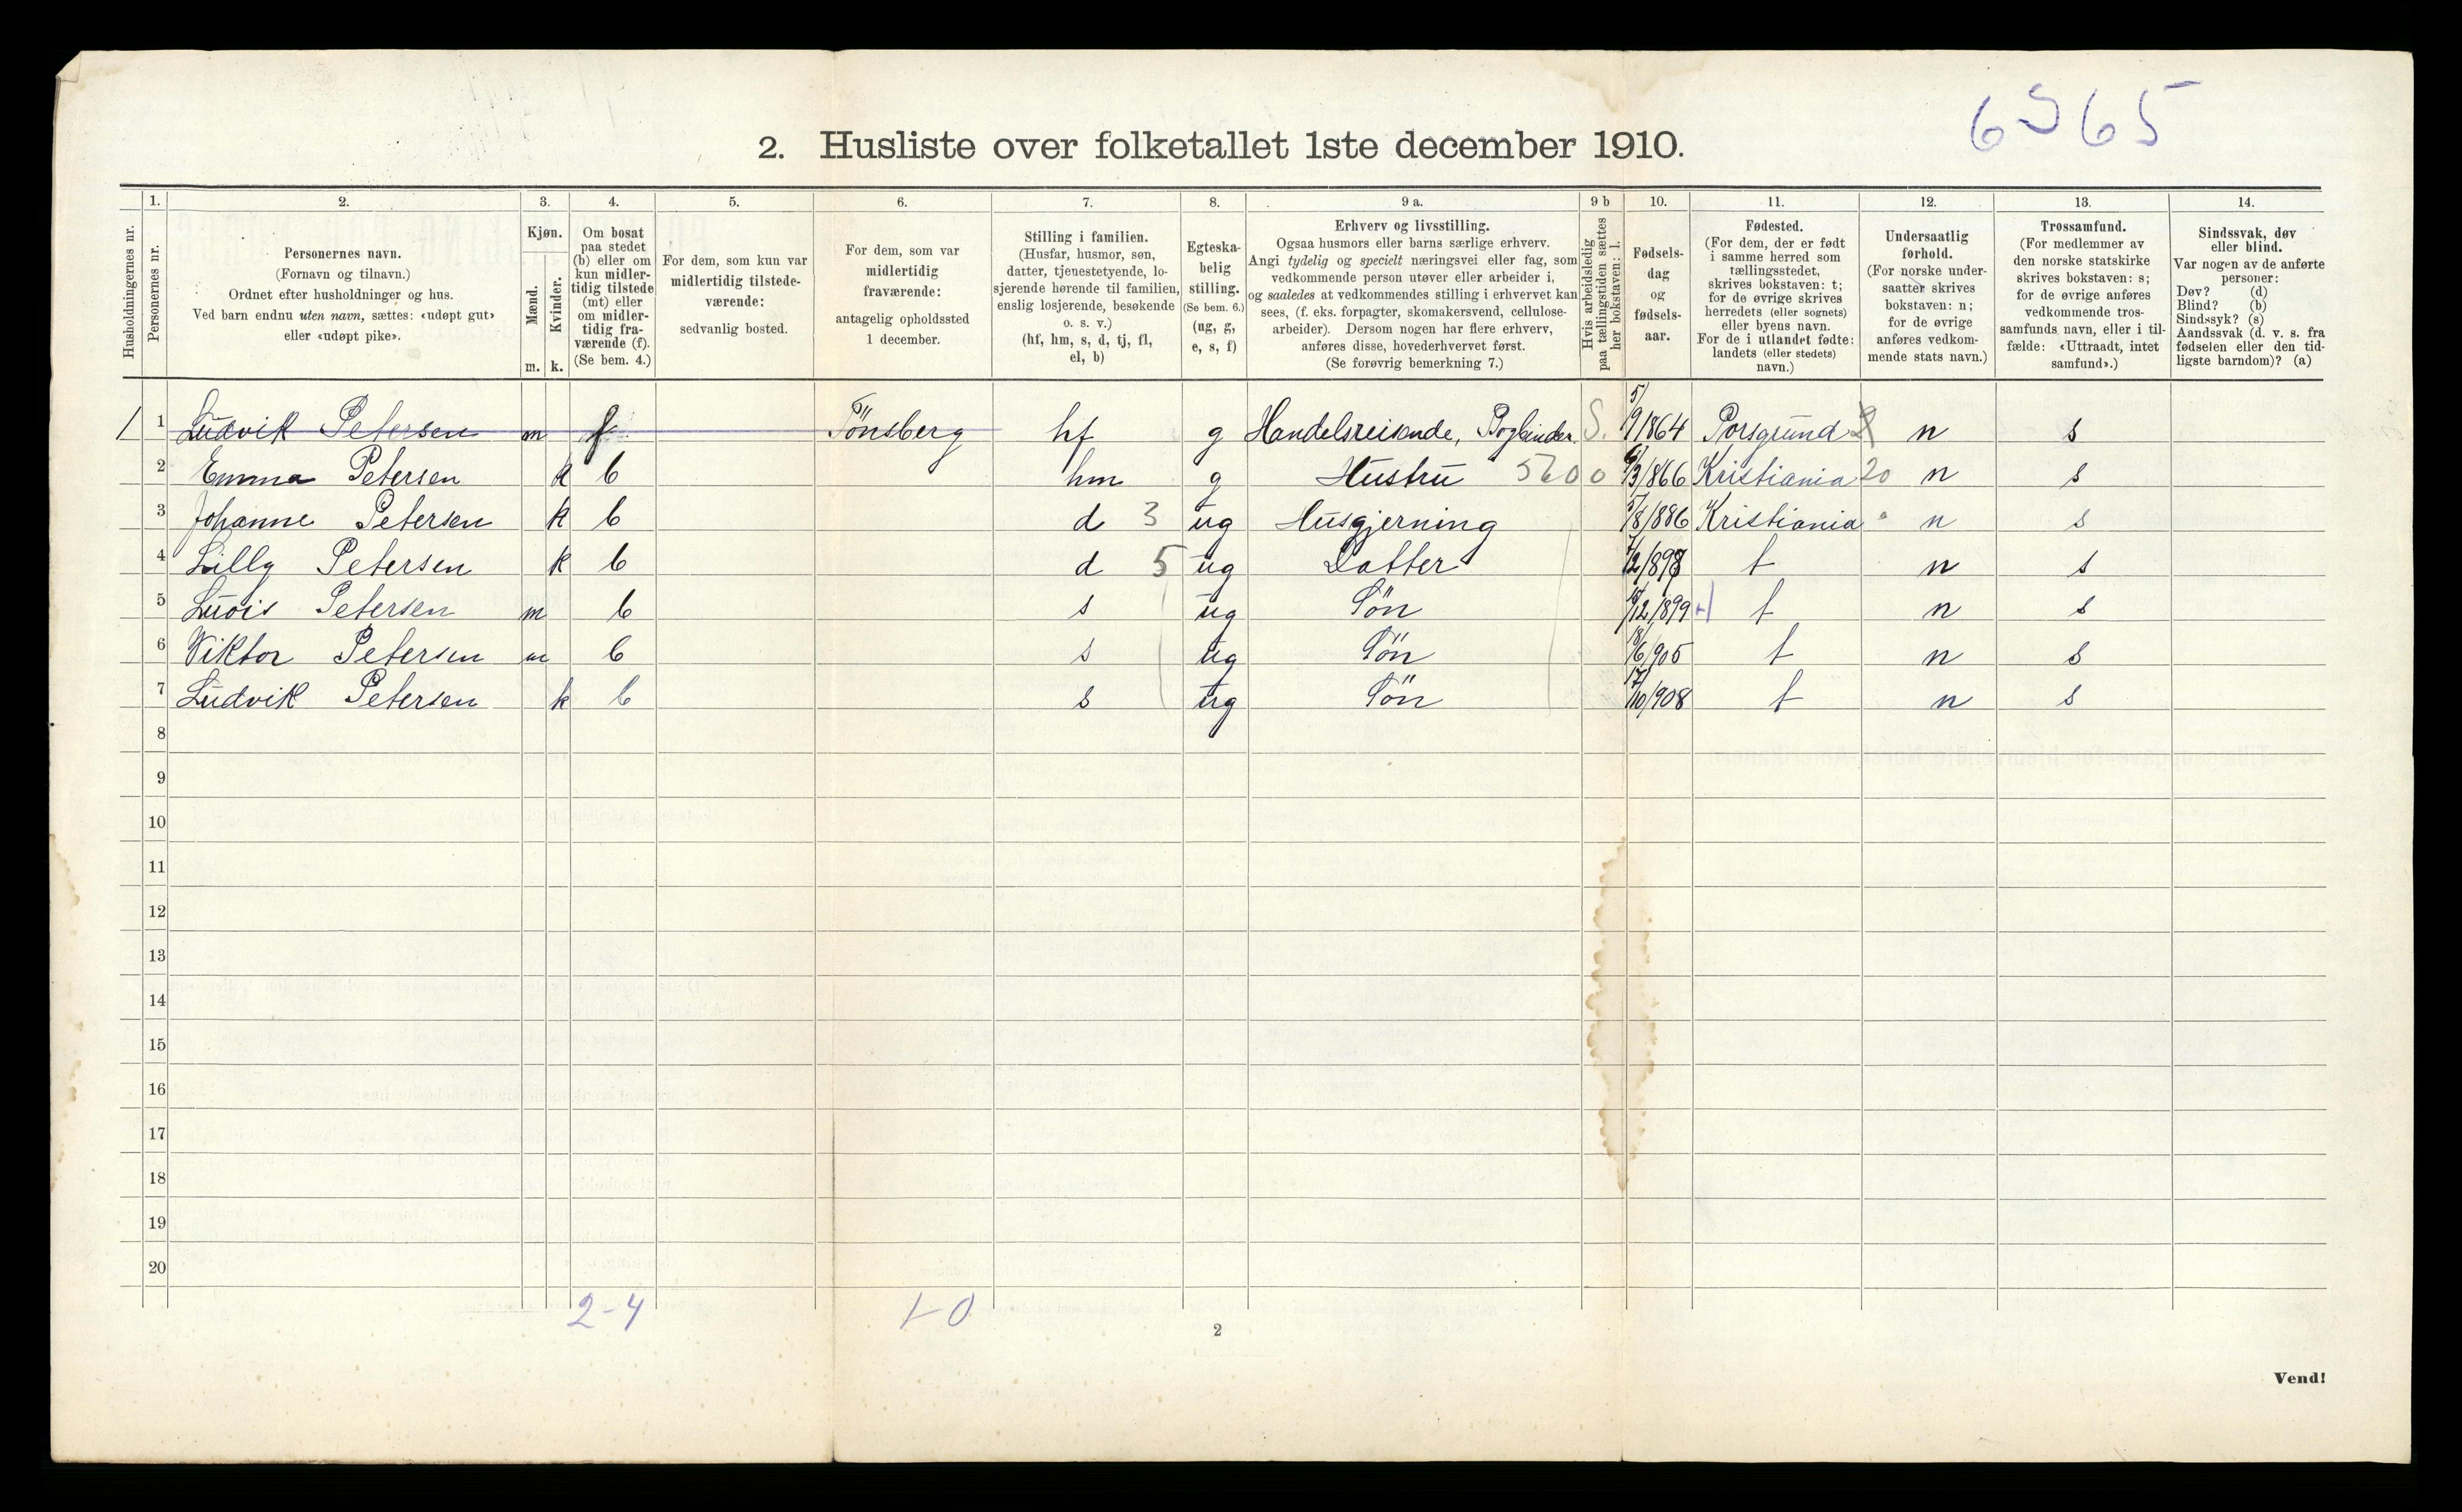 6565
2. Husliste over folketallet 1ste december 1910.
Husholdningernes nr.
1.
Personernes nr.
2.
Personernes navn.
(Fornavn og tilnavn.)
Ordnet efter husholdninger og hus.
Ved barn endnu uten navn, sættes: «udøpt gut»
eller «udøpt pike».
3.
Kjøn.
Mænd.
Kvinder.
m. k.
4.
Om bosat
paa stedet
(b) eller om
kun midler-
tidig tilstede
(mt) eller
om midler-
tidig fra-
værende (f).
(Se bem. 4.)
5.
For dem, som kun var
midlertidig tilstede-
værende:
sedvanlig bosted.
6.
For dem, som var
midlertidig
fraværende:
antagelig opholdssted
1 december.
7.
Stilling i familien.
(Husfar, husmor, søn,
datter, tjenestetyende, lo-
sjerende hørende til familien,
enslig losjerende, besøkende
o. s. v.)
(hf, hm, s, d, tj, fl,
el, b)
8.
Egteska-
belig
stilling.
(Se bem. 6.)
(ug, g,
e, s, f)
9 a.
Erhverv og livsstilling.
Ogsaa husmors eller barns særlige erhverv.
Angi tydelig og specielt næringsvei eller fag, som
vedkommende person utøver eller arbeider i,
og saaledes at vedkommendes stilling i erhvervet kan
sees, (f. eks. forpagter, skomakersvend, cellulose-
arbeider). Dersom nogen har flere erhverv,
anføres disse, hovederhvervet først.
(Se forøvrig bemerkning 7.)
9 b
Hvis arbeidsledig
paa tællingstiden sættes
her bokstaven: l.
10.
Fødsels-
dag
og
fødsels-
aar.
11.
Fødested.
(For dem, der er født
i samme herred som
tællingsstedet,
skrives bokstaven: t;
for de øvrige skrives
herredets (eller sognets)
eller byens navn.
For de i utlandet fødte:
landets (eller stedets)
navn.)
12.
Undersaatlig
forhold.
(For norske under-
saatter skrives
bokstaven: n;
for de øvrige
anføres vedkom-
mende stats navn.)
13.
Trossamfund.
(For medlemmer av
den norske statskirke
skrives bokstaven: s;
for de øvrige anføres
vedkommende tros-
samfunds navn, eller i til-
fælde: «Uttraadt, intet
samfund».)
14.
Sindssvak, døv
eller blind.
Var nogen av de anførte
personer:
Døv? (d)
Blind? (b)
Sindssyk? (s)
Aandssvak (d. v. s. fra
fødselen eller den tid-
ligste barndom)? (a)
1 1 Ludvik Petersen m f Tönsberg hf g Handelsreisende, Bogbinder S. 5/9/864 Porsgrund n s
2 Emma Petersen k b hm g Hustru 5600 /3/866 Kristiania 20 n s
3 Johanne Petersen k b d 3 ug Husgjerning 5/8/886 Kristiania " n s
4 Lilly Petersen k b d 5 ug Datter /2/898 t n s
5 Luois Petersen m b s ug Sön /12/899 t n s
6 Viktor Petersen m b s ug Sön 18/6/905 t n s
7 Ludvik Petersen k b s ug Sön 17/10/908 t n s
8
9
10
11
12
13
14
15
16
17
18
19
20
2-4
1-0
2
Vend!